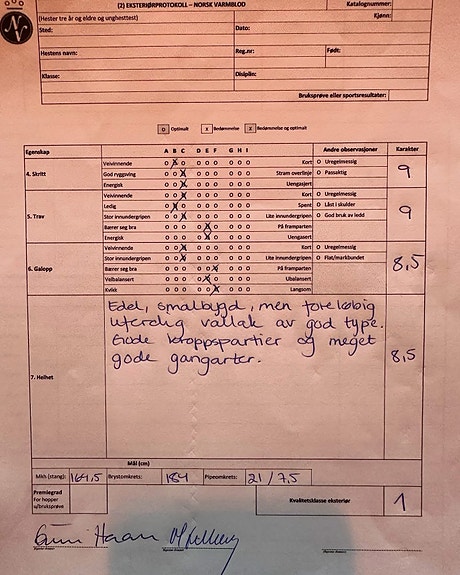 (2) EKSTERIØRPROTOKOLL – NORSK VARMBLOD
Katalognummer:
(Hester tre år og eldre og unghesttest)
Kjønn:
Sted:
Dato:
Hestens navn:
Reg.nr:
Født:
Klasse:
Disiplin:
Bruksprøve eller sportsresultater:
O Optimalt X Bedømmelse X Bedømmelse og optimalt
Egenskap A B C D E F G H I Andre observasjoner Karakter
4. Skritt
Velvinnende Kort O Uregelmessig
God ryggsving Stram overlinje O Passaktig
Energisk Uengasjert
9
5. Trav
Velvinnende Kort O Uregelmessig
Ledig Spent O Låst i skulder
Stor innundergripen Lite innundergripen O God bruk av ledd
Bærer seg bra På framparten
Energisk Uengasert
9
6. Galopp
Velvinnende Kort O Uregelmessig
Stor innundergripen Lite innundergripen O Flat/markbundet
Bærer seg bra På framparten
Velbalansert Ubalansert
Kvikk Langsom
8,5
7. Helhet
Edel, smalbygd, men foreløbig
uferdig vallak av god type.
Gode kroppspartier og meget
gode gangarter.
8,5
Mål (cm)
Mkh (stang): 164,5 Brystomkrets: 184 Pipeomkrets: 21 / 7,5
Premiegrad
For hopper
u/bruksprøve
Kvalitetsklasse eksteriør 1